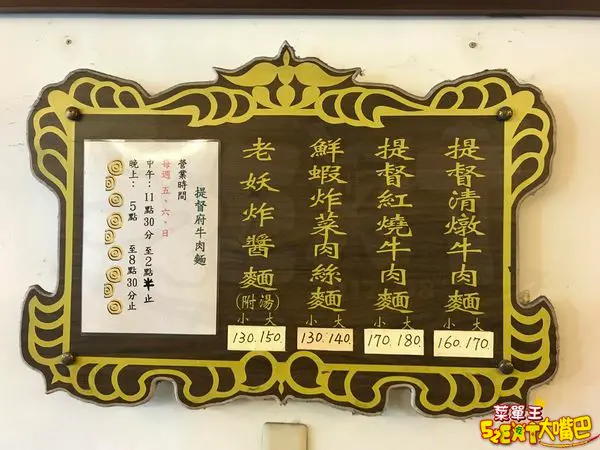 提督清燉牛肉麵
小 大
160.170.
提督紅燒牛肉麵
小 大
170.180.
鮮蝦炸菜肉絲麵
小 大
130.140.
老妖炸醬麵
(附湯)
小 大
130.150.
提督府牛肉麵
營業時間
每週 五、六、日
中午：11點30分 至2點半止
晚上：5點 至8點30分止
菜單王
SZEAT大嘴巴